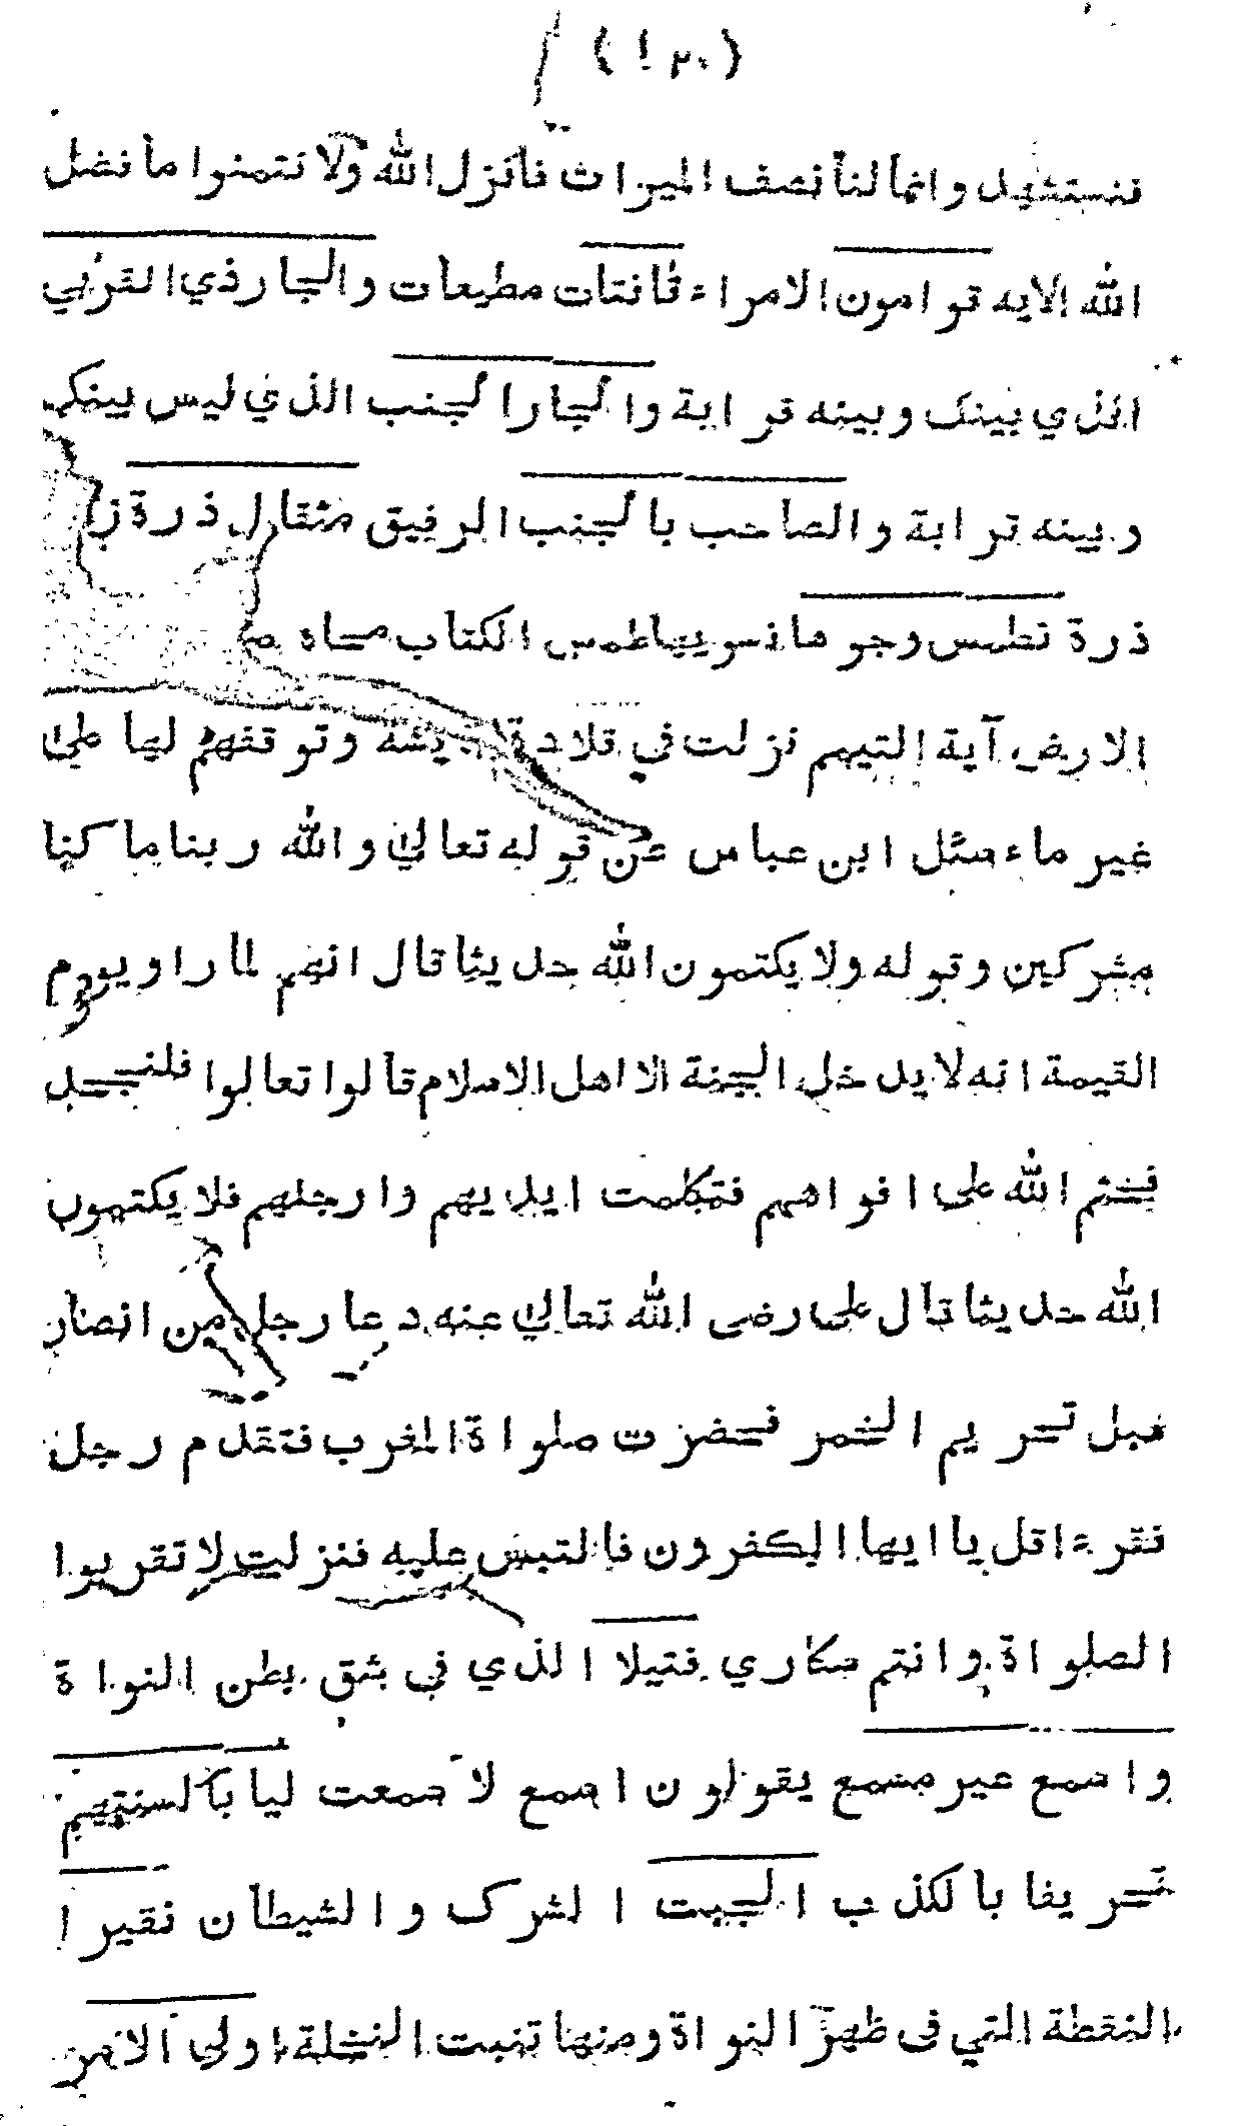 (١٢٠)
فنستشهد وانما لنا نصف الميراث فأنزل الله ولا تتمنوا ما فضل
الله الايه قوامون الامراء قانتات مطيعات والجار ذي القربي
الذي بينك وبينه قرابة والجار الجنب الذي ليس بينك
وبينه قرابة والصاحب بالجنب الرفيق مثقال ذرة
ذرة نطمس وجوها نسويها طمس الكتاب محاه
الارض آية التيمم نزلت في قلادة وتوقفهم ليها على
غير ماء سئل ابن عباس عن قوله تعالي والله ربنا ما كنا
مشركين وقوله ولا يكتمون الله حديثا قال انهم لما راو يوم
القيمة انه لا يدخل الجنة الا اهل الاسلام قالوا تعالوا فلنجحد
فختم الله على افواهم فتكلمت ايديهم وارجلهم فلا يكتمون
الله حديثا قال على رضى الله تعالي عنه دعا رجل من انصار
قبل تحريم الخمر فحضرت صلواة المغرب فتقدم رجل
فقرء قل يا ايها الكفرون فالتبس عليه فنزلت لا تقربوا
الصلواة وانتم سكاري فتيلا الذي في شق بطن النواة
واسمع غير مسمع يقولون اسمع لا سمعت ليا بالسنتهم
تحريفا بالكذب الجبت الشرك والشيطان نقيرا
النقطة التي فى ظهر النواة ومنها تنبت النخلة اولي الامر